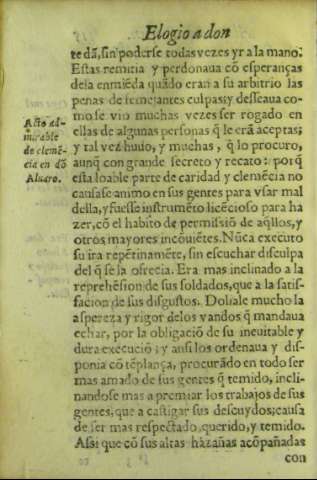 Elogio a don
te dã, sin poderse todas vezes yr a la mano.
Estas remitia y perdonaua cõ esperanças
dela enmiẽda quãdo eran a su arbitrio las
penas de semejantes culpas: y desseaua co-
mo se vio muchas vezes ser rogado en
ellas de algunas personas q̃ le erã aceptas;
y tal vez hudo, y muchas, q̃ lo procuro,
aunq̃ con grande secreto y recato: porq̃
esta loable parte de caridad y clemẽcia no
causase animo en sus gentes para vsar mal
della, y fuesse instrumẽto licẽcioso para ha
zer, cõ el habito de permissiõ de aq̃llos, y
otros mayores incõuiẽtes. Nũca executo
su ira repẽtinamẽte, sin escuchar disculpa
del q̃ se la ofrecia. Era mas inclinado a la
reprehẽsion de sus soldados, que a la satis-
facion de sus disgustos. Doliale mucho la
aspereza y rigor de los vandos q̃ mandaua
echar, por la obligaciõ de su ineuitable y
dura execuciõ; y ansi los ordenaua y dis-
ponia cõ tẽplança, procurãdo en todo ser
mas amado de sus gentes q̃ temido, incli-
nandose mas a premiar los trabajos de sus
gentes, que a castigar sus descuydos; causa
de ser mas respetado, querido, y temido.
Assi que cõ sus altas hazañas acõpañadas
con
Acto ad-
mirable
de clemẽ-
cia en dõ
Aluaro.